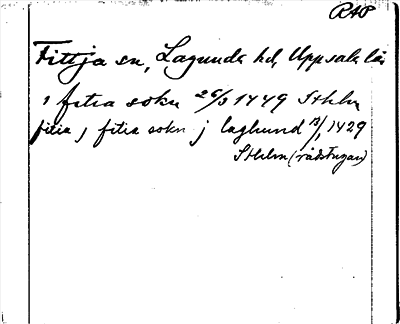 RAP
Fittja sn, Lagunda hd, Uppsala län
i fitia sokn 26/3 1449 Sthlm
fitia j fitia sokn j laghund 13/1 1429
Sthlm (rådstugan)